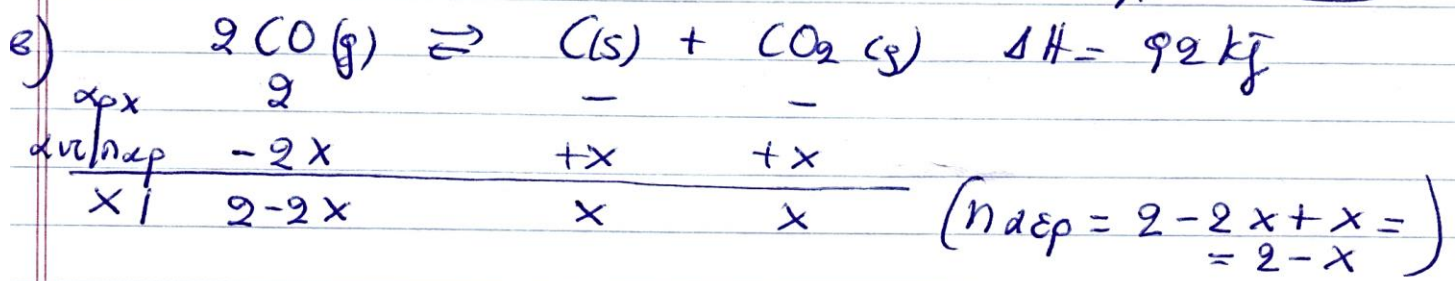 β) 2CO(g) ⇌ C(s) + CO₂(g) ΔH = 92 kJ
αρχ 2 – –
αντ/παρ -2x +x +x
ΧΙ 2-2x x x (nαερ = 2-2x+x =
= 2-x)